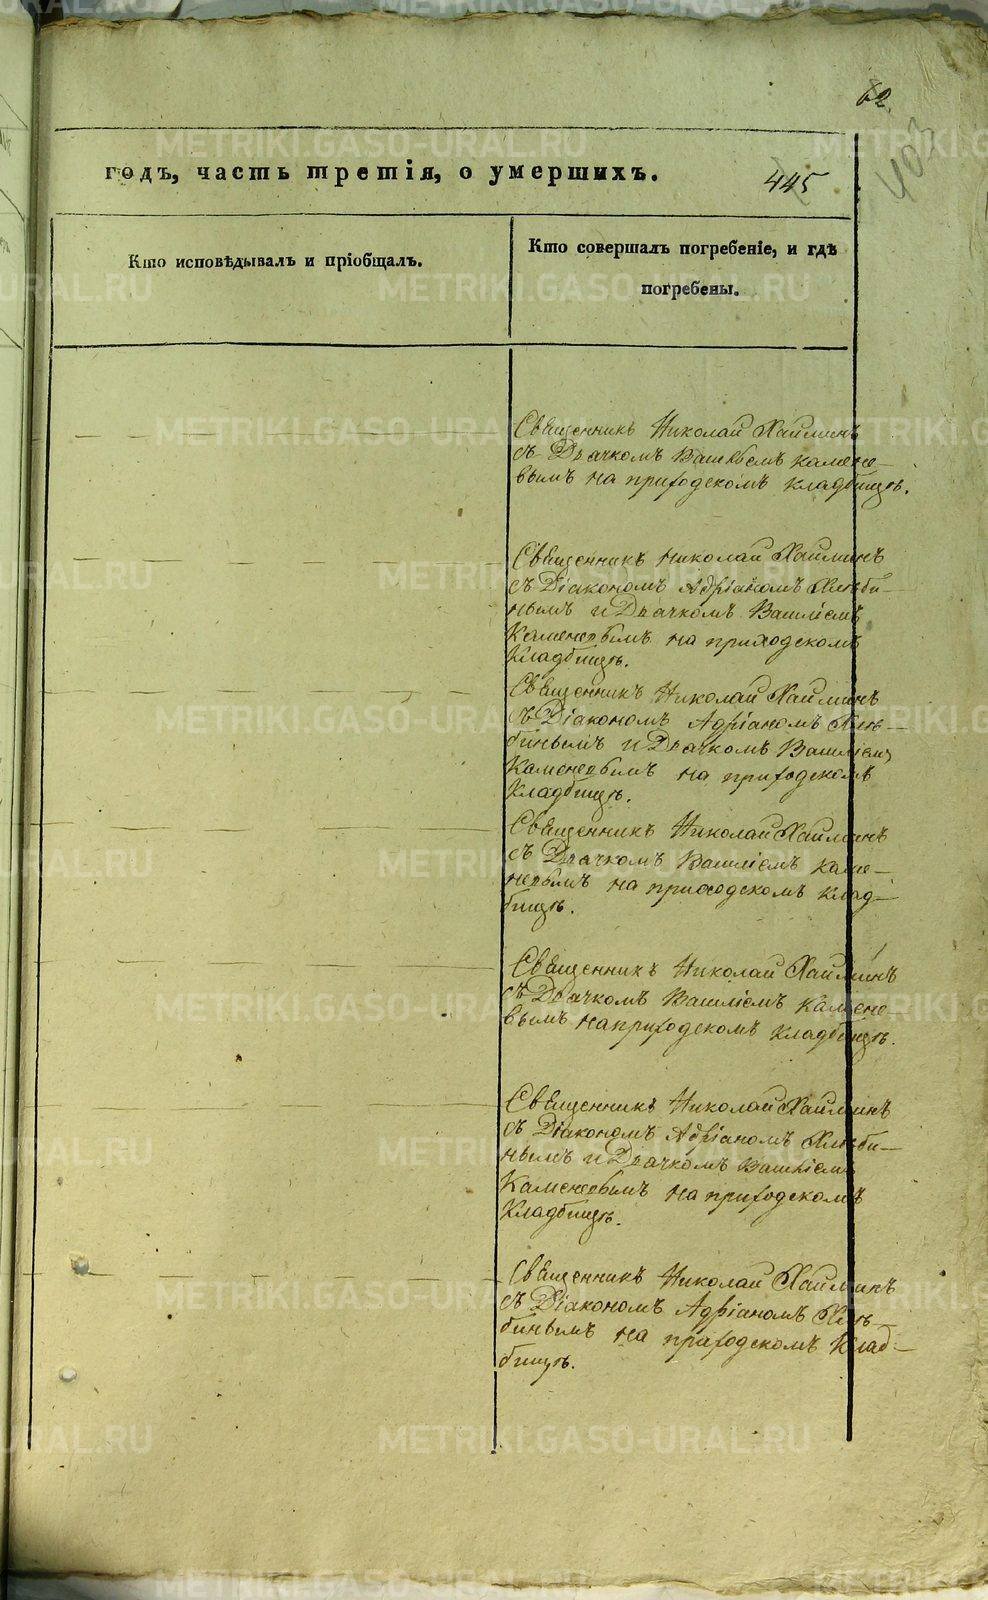 62
445
годъ, часть третія, о умершихъ.
Кто исповѣдывалъ и пріобщалъ.
Кто совершалъ погребеніе, и гдѣ
погребены.
Священникъ Николай Хайминъ
съ Дьячкомъ Василіемъ Камене-
вымъ на приходскомъ кладбищѣ.
Священникъ Николай Хайминъ
съ Діакономъ Адріаномъ Хлѣби-
нымъ и Дьячкомъ Василіемъ
Каменевымъ на приходскомъ
Кладбищѣ.
Священникъ Николай Хайминъ
съ Діакономъ Адріаномъ Хлѣ-
бинымъ и Дьячкомъ Василіемъ
Каменевымъ на приходскомъ
Кладбищѣ.
Священникъ Николай Хайминъ
съ Дьячкомъ Василіемъ Каме-
невымъ на приходскомъ клад-
бищѣ.
Священникъ Николай Хайминъ
съ Дьячкомъ Василіемъ Камене-
вымъ на приходскомъ кладбищѣ.
Священникъ Николай Хайминъ
съ Діакономъ Адріаномъ Хлѣби-
нымъ и Дьячкомъ Василіемъ
Каменевымъ на приходскомъ
Кладбищѣ.
Священникъ Николай Хайминъ
съ Діакономъ Адріаномъ Хлѣ-
бинымъ на приходскомъ Клад-
бищѣ.
METRIKI.GASO-URAL.RU